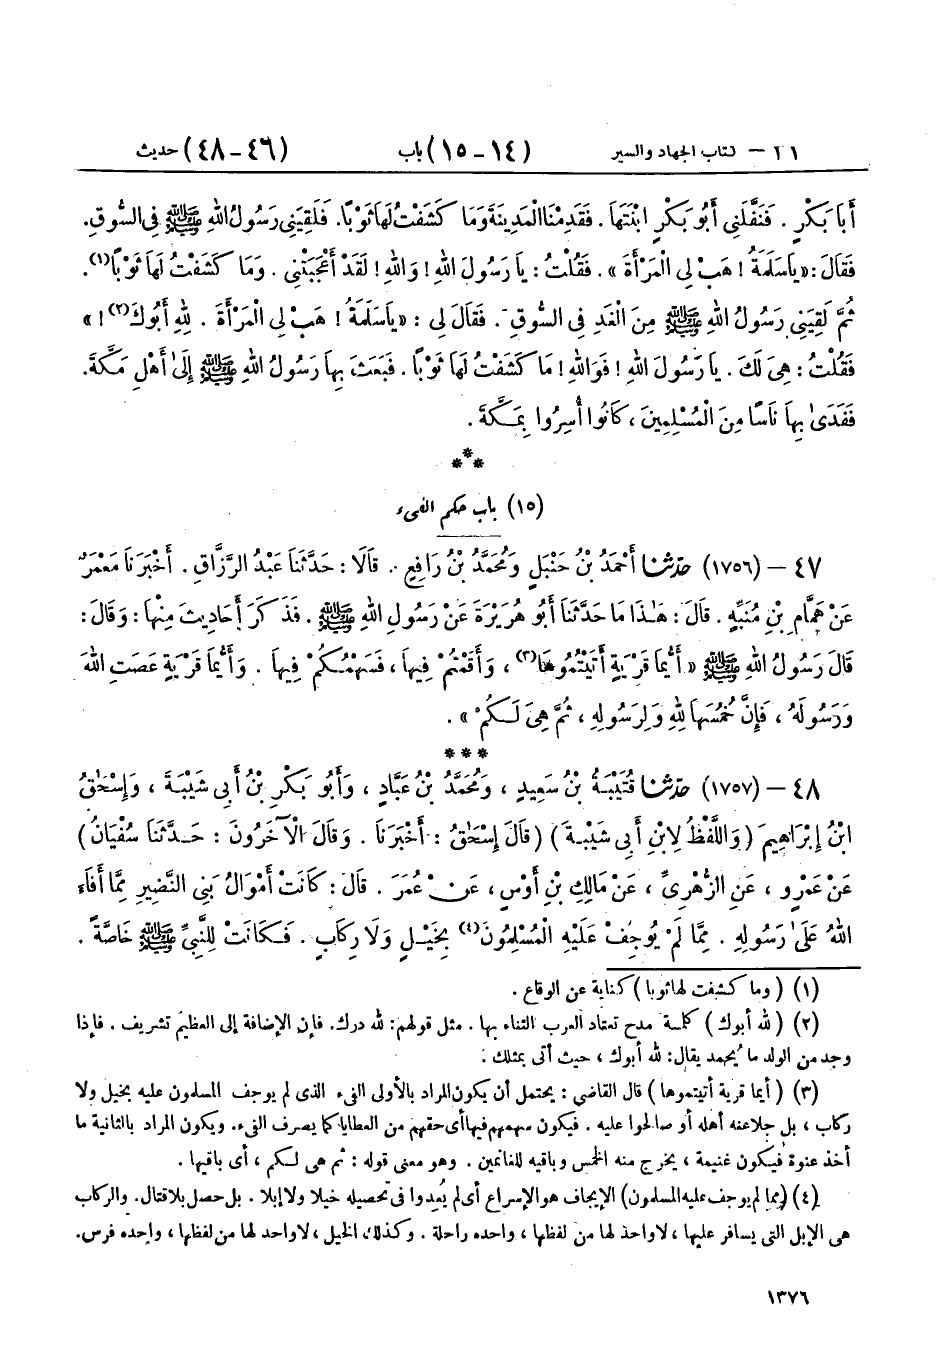 ٢١ – كتاب الجهاد والسير (١٤ – ١٥) باب (٤٦ – ٤٨) حديث
أَبَا بَكْرٍ . فَنَفَّلَنِي أَبُو بَكْرٍ ابْنَتَهَا . فَقَدِمْنَا الْمَدِينَةَ وَمَا كَشَفْتُ لَهَا ثَوْبًا. فَلَقِيَنِي رَسُولُ اللهِ ﷺ فِي السُّوقِ.
فَقَالَ: «يَا سَلَمَةُ ! هَبْ لِي الْمَرْأَةَ» . فَقُلْتُ : يَا رَسُولَ اللهِ ! وَاللهِ ! لَقَدْ أَعْجَبَتْنِي . وَمَا كَشَفْتُ لَهَا ثَوْبًا(١).
ثُمَّ لَقِيَنِي رَسُولُ اللهِ ﷺ مِنَ الْغَدِ فِي السُّوقِ . فَقَالَ لِي : «يَا سَلَمَةُ ! هَبْ لِي الْمَرْأَةَ . لِلهِ أَبُوكَ(٢)! »
فَقُلْتُ : هِيَ لَكَ . يَا رَسُولَ اللهِ ! فَوَاللهِ ! مَا كَشَفْتُ لَهَا ثَوْبًا . فَبَعَثَ بِهَا رَسُولُ اللهِ ﷺ إِلَىٰ أَهْلِ مَكَّةَ.
فَفَدَىٰ بِهَا نَاسًا مِنَ الْمُسْلِمِينَ ، كَانُوا أُسِرُوا بِمَكَّةَ .
***
(١٥) باب حكم الفىء
٤٧ – (١٧٥٦) حَدَّثَنَا أَحْمَدُ بْنُ حَنْبَلٍ وَمُحَمَّدُ بْنُ رَافِعٍ . قَالَا : حَدَّثَنَا عَبْدُ الرَّزَّاقِ . أَخْبَرَنَا مَعْمَرٌ
عَنْ هَمَّامِ بْنِ مُنَبِّهٍ . قَالَ : هَـٰذَا مَا حَدَّثَنَا أَبُو هُرَيْرَةَ عَنْ رَسُولِ اللهِ ﷺ . فَذَكَرَ أَحَادِيثَ مِنْهَا : وَقَالَ :
قَالَ رَسُولُ اللهِ ﷺ « أَيُّمَا قَرْيَةٍ أَتَيْتُمُوهَا(٣) ، وَأَقَمْتُمْ فِيهَا ، فَسَهْمُكُمْ فِيهَا . وَأَيُّمَا قَرْيَةٍ عَصَتِ اللهَ
وَرَسُولَهُ ، فَإِنَّ خُمُسَهَا لِلهِ وَلِرَسُولِهِ ، ثُمَّ هِيَ لَكُمْ » .
***
٤٨ – (١٧٥٧) حَدَّثَنَا قُتَيْبَةُ بْنُ سَعِيدٍ ، وَمُحَمَّدُ بْنُ عَبَّادٍ ، وَأَبُو بَكْرِ بْنُ أَبِي شَيْبَةَ ، وَإِسْحَاقُ
ابْنُ إِبْرَاهِيمَ (وَاللَّفْظُ لِابْنِ أَبِي شَيْبَةَ) (قَالَ إِسْحَاقُ : أَخْبَرَنَا . وَقَالَ الْآخَرُونَ : حَدَّثَنَا سُفْيَانُ)
عَنْ عَمْرٍو ، عَنِ الزُّهْرِيِّ ، عَنْ مَالِكِ بْنِ أَوْسٍ ، عَنْ عُمَرَ . قَالَ : كَانَتْ أَمْوَالُ بَنِي النَّضِيرِ مِمَّا أَفَاءَ
اللهُ عَلَىٰ رَسُولِهِ . مِمَّا لَمْ يُوجِفْ عَلَيْهِ الْمُسْلِمُونَ(٤) بِخَيْلٍ وَلَا رِكَابٍ . فَكَانَتْ لِلنَّبِيِّ ﷺ خَاصَّةً .
(١) (وما كشفت لها ثوبا) كناية عن الوقاع .
(٢) (لله أبوك) كلمة مدح تعتاد العرب الثناء بها . مثل قولهم: لله درك. فإن الإضافة إلى العظيم تشريف . فإذا
وجد من الولد ما يُحمد يقال: لله أبوك ، حيث أتى بمثلك .
(٣) (أيما قرية أتيتموها) قال القاضى : يحتمل أن يكون المراد بالأولى الفىء الذى لم يوجف المسلمون عليه بخيل ولا
ركاب ، بل جلا عنه أهله أو صالحوا عليه . فيكون سهمهم فيها أى حقهم من العطايا كما يصرف الفىء. ويكون المراد بالثانية ما
أخذ عنوة فيكون غنيمة ، يخرج منه الخمس وباقيه للغانمين . وهو معنى قوله : ثم هى لكم ، أى باقيها .
(٤) (مما لم يوجف عليه المسلمون) الإيجاف هو الإسراع أى لم يُعِدوا فى تحصيله خيلا ولا إبلا . بل حصل بلا قتال. والركاب
هى الإبل التى يسافر عليها ، لا واحد لها من لفظها ، واحده راحلة . وكذلك الخيل ، لا واحد لها من لفظها ، واحده فرس.
١٣٧٦